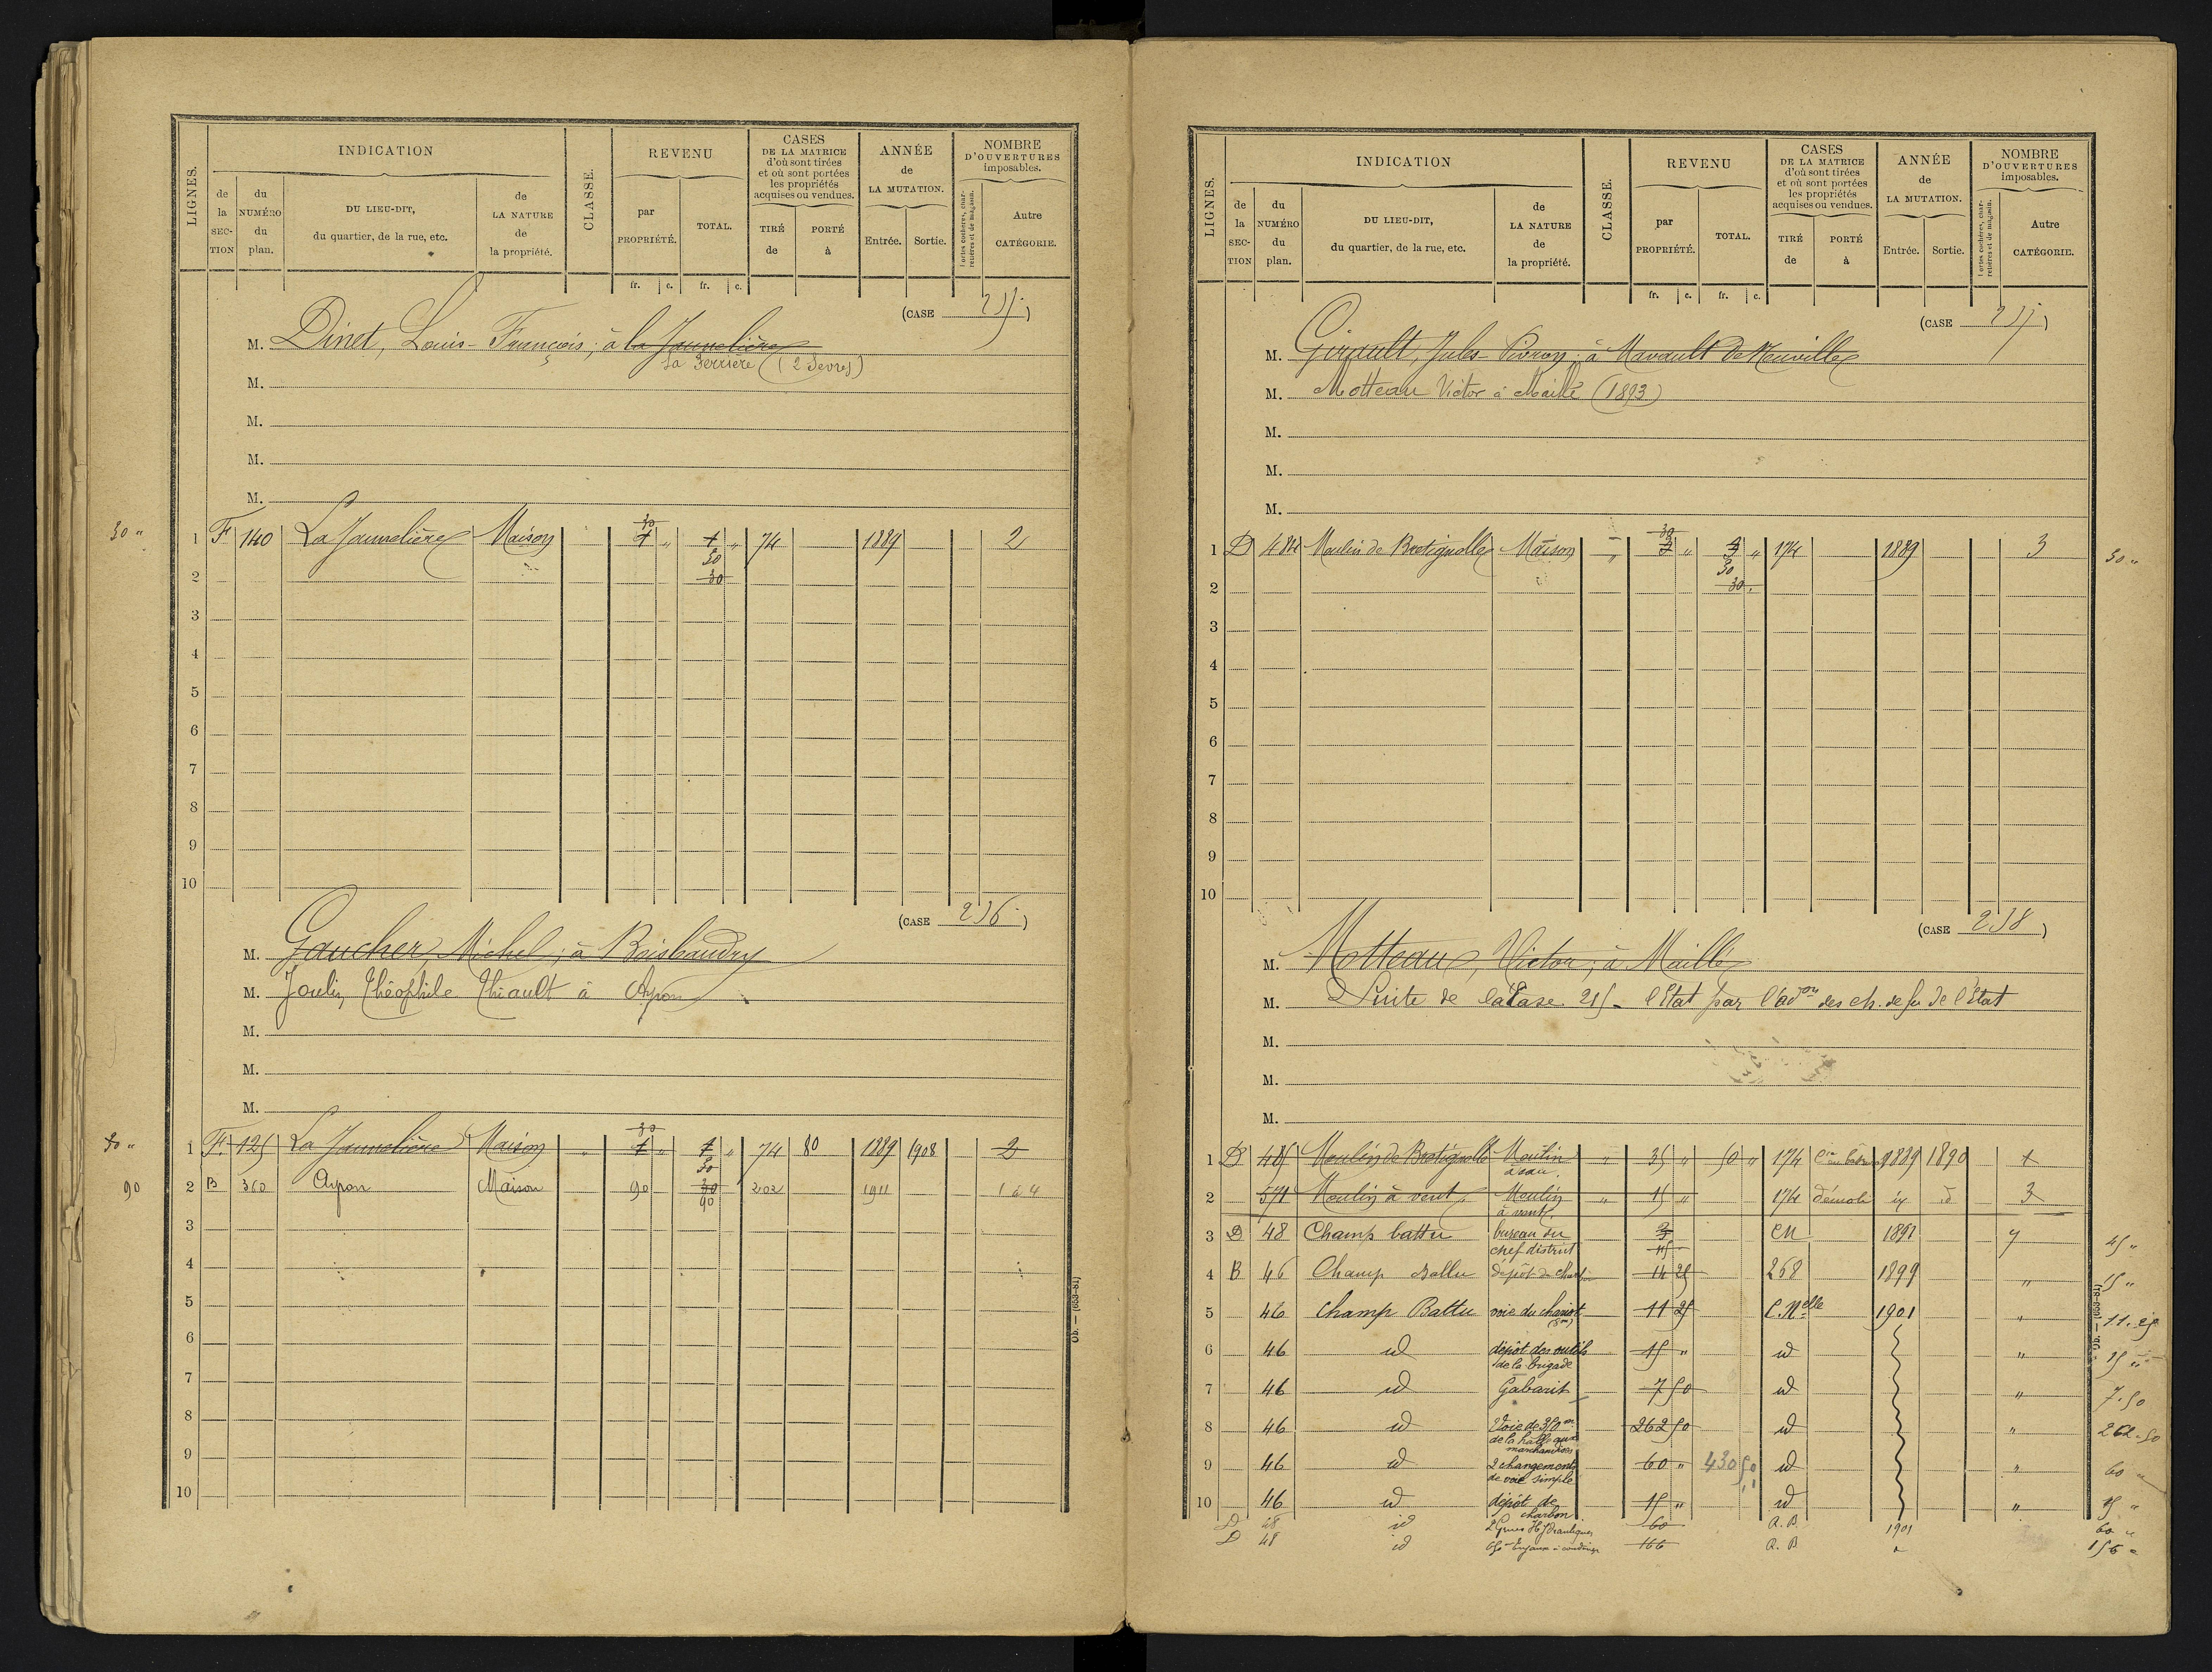 LIGNES.
INDICATION
CLASSE.
REVENU
CASES
DE LA MATRICE
d'où sont tirées
et où sont portées
les propriétés
acquises ou vendues.
ANNÉE
de
LA MUTATION.
NOMBRE
D'OUVERTURES
imposables.
de la SECTION
du NUMÉRO du plan.
DU LIEU-DIT,
du quartier, de la rue, etc.
de LA NATURE de la propriété.
par PROPRIÉTÉ.
TOTAL.
TIRÉ de
PORTÉ à
Entrée.
Sortie.
Portes cochères, charretières et de magasin.
Autre CATÉGORIE.
fr. c. fr. c.
(CASE )
M. Dinet, Louis-François, à la Jaumelière
La Ferrière (2 Sevres)
M.
M.
M.
M.
30 "
1 F 140 La Jaumelière Maison 30 " " 74 1889 2
30
30
2
3
4
5
6
7
8
9
10
(CASE 236)
M. Gaucher, Michel, à Brisbaudry
M. Joulin Théophile Thiault à Ayron
M.
M.
M.
30 "
1 F. 125 La Jaumelière Maison " 30 " " 74 80 1889 1908 2
30
90
2 B 360 Ayron Maison 90 30 202 1911
90
3
4
5
6
7
8
9
10
Ob. — (653-81)
LIGNES.
INDICATION
CLASSE.
REVENU
CASES
DE LA MATRICE
d'où sont tirées
et où sont portées
les propriétés
acquises ou vendues.
ANNÉE
de
LA MUTATION.
NOMBRE
D'OUVERTURES
imposables.
de la SECTION
du NUMÉRO du plan.
DU LIEU-DIT,
du quartier, de la rue, etc.
de LA NATURE de la propriété.
par PROPRIÉTÉ.
TOTAL.
TIRÉ de
PORTÉ à
Entrée.
Sortie.
Portes cochères, charretières et de magasin.
Autre CATÉGORIE.
fr. c. fr. c.
(CASE )
M. Girault, Jules à Mavault de Neuville
M. Motteau Victor à Maillé (1893)
M.
M.
M.
1 D 484 Moulin de Bretignolle Maison " 30 " " 174 1889 3 30 "
30
30
2
3
4
5
6
7
8
9
10
(CASE 238)
M. Motteau, Victor, à Maillé
M. Suite de la Case 215 - l'Etat par l'adon des ch. de fer de l'Etat
M.
M.
M.
1 D 485 Moulin de Bretignolle Moulin à eau " 35 " 50 " 174 1889 1890
2 571 Moulin à vent Moulin à vent " 15 " 174 démoli id id 3
3 D 48 Champ battu bureau du chef district 45 CN 1891 7 45 "
4 B 46 Champ Battu dépôt de charb. 268 1899 " 15 "
5 46 Champ Battu voie du chariot (8m) 11 25 C. Nelle 1901 " 11.25
6 46 id dépôt des outils de la brigade 15 " id " 15 "
7 46 id Gabarit 7 50 id " 7.50
8 46 id Voie de 350m de la halle aux marchandises 262 50 id " 262.50
9 46 id 2 changements de voie simple 60 " 430 50 id " 60 "
10 46 id dépôt de charbon 15 " id " 15 "
D 48 id 2 Grues Hydrauliques 60 A. B. 1901 60 "
D 48 id Tuyaux 156 A. B. " 156 "
Ob. — (653-81)